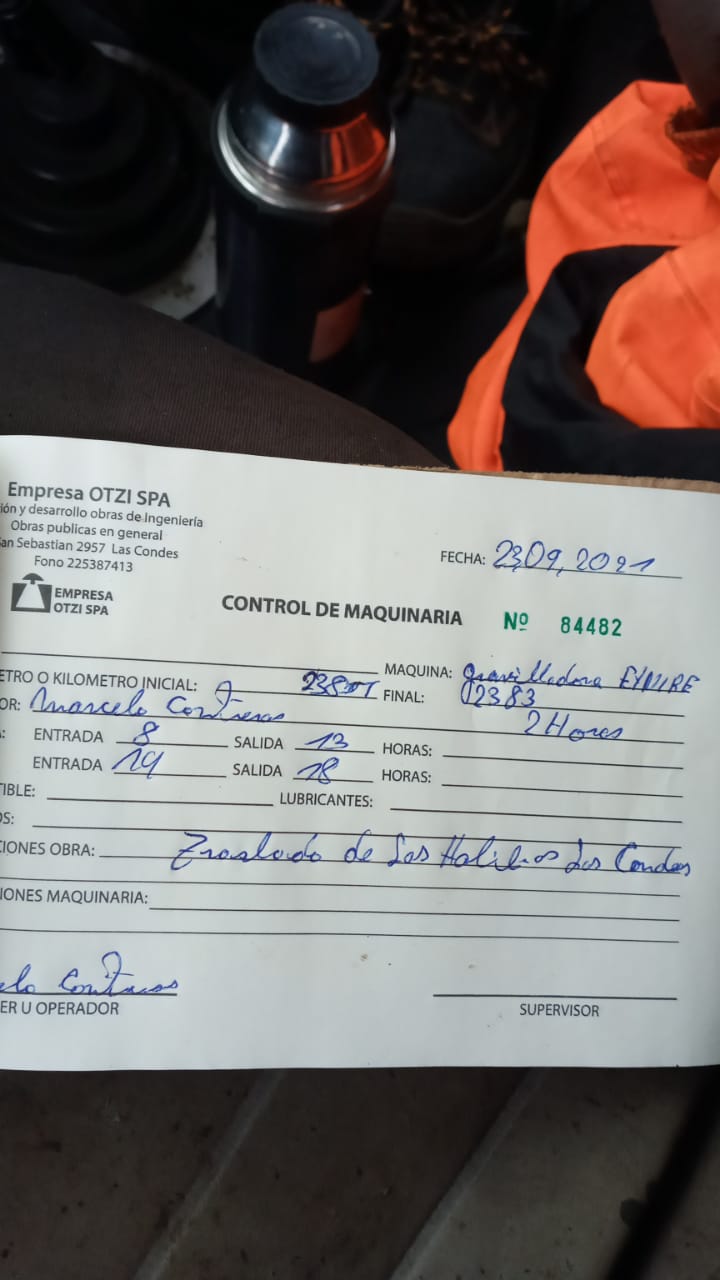 Empresa OTZI SPA
ión y desarrollo obras de Ingeniería
Obras publicas en general
an Sebastian 2957 Las Condes
Fono 225387413
EMPRESA
OTZI SPA
FECHA: 23,09,2021
CONTROL DE MAQUINARIA Nº 84482
MAQUINA: gravilladora
ETRO O KILOMETRO INICIAL: FINAL: 02383
OR: Marcelo Contreras 2 Hores
: ENTRADA 8 SALIDA 13 HORAS:
ENTRADA 14 SALIDA 18 HORAS:
TIBLE: LUBRICANTES:
OS:
CIONES OBRA: Traslado de Las Condes
IONES MAQUINARIA:
elo Contreras
ER U OPERADOR SUPERVISOR